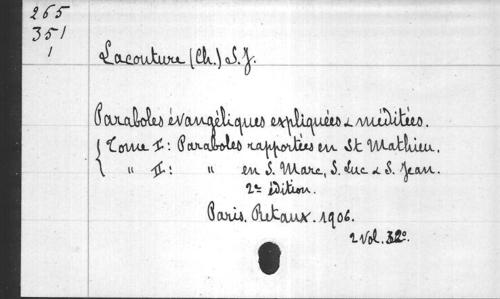 265
351
1
Lacouture (Ch.) S. J.
Paraboles évangéliques expliquées & méditées.
Tome I: Paraboles rapportées en St Mathieu.
" II: " en S. Marc, S. Luc & S. Jean.
2e édition.
Paris. Retaux. 1906.
2 vol. 32o.